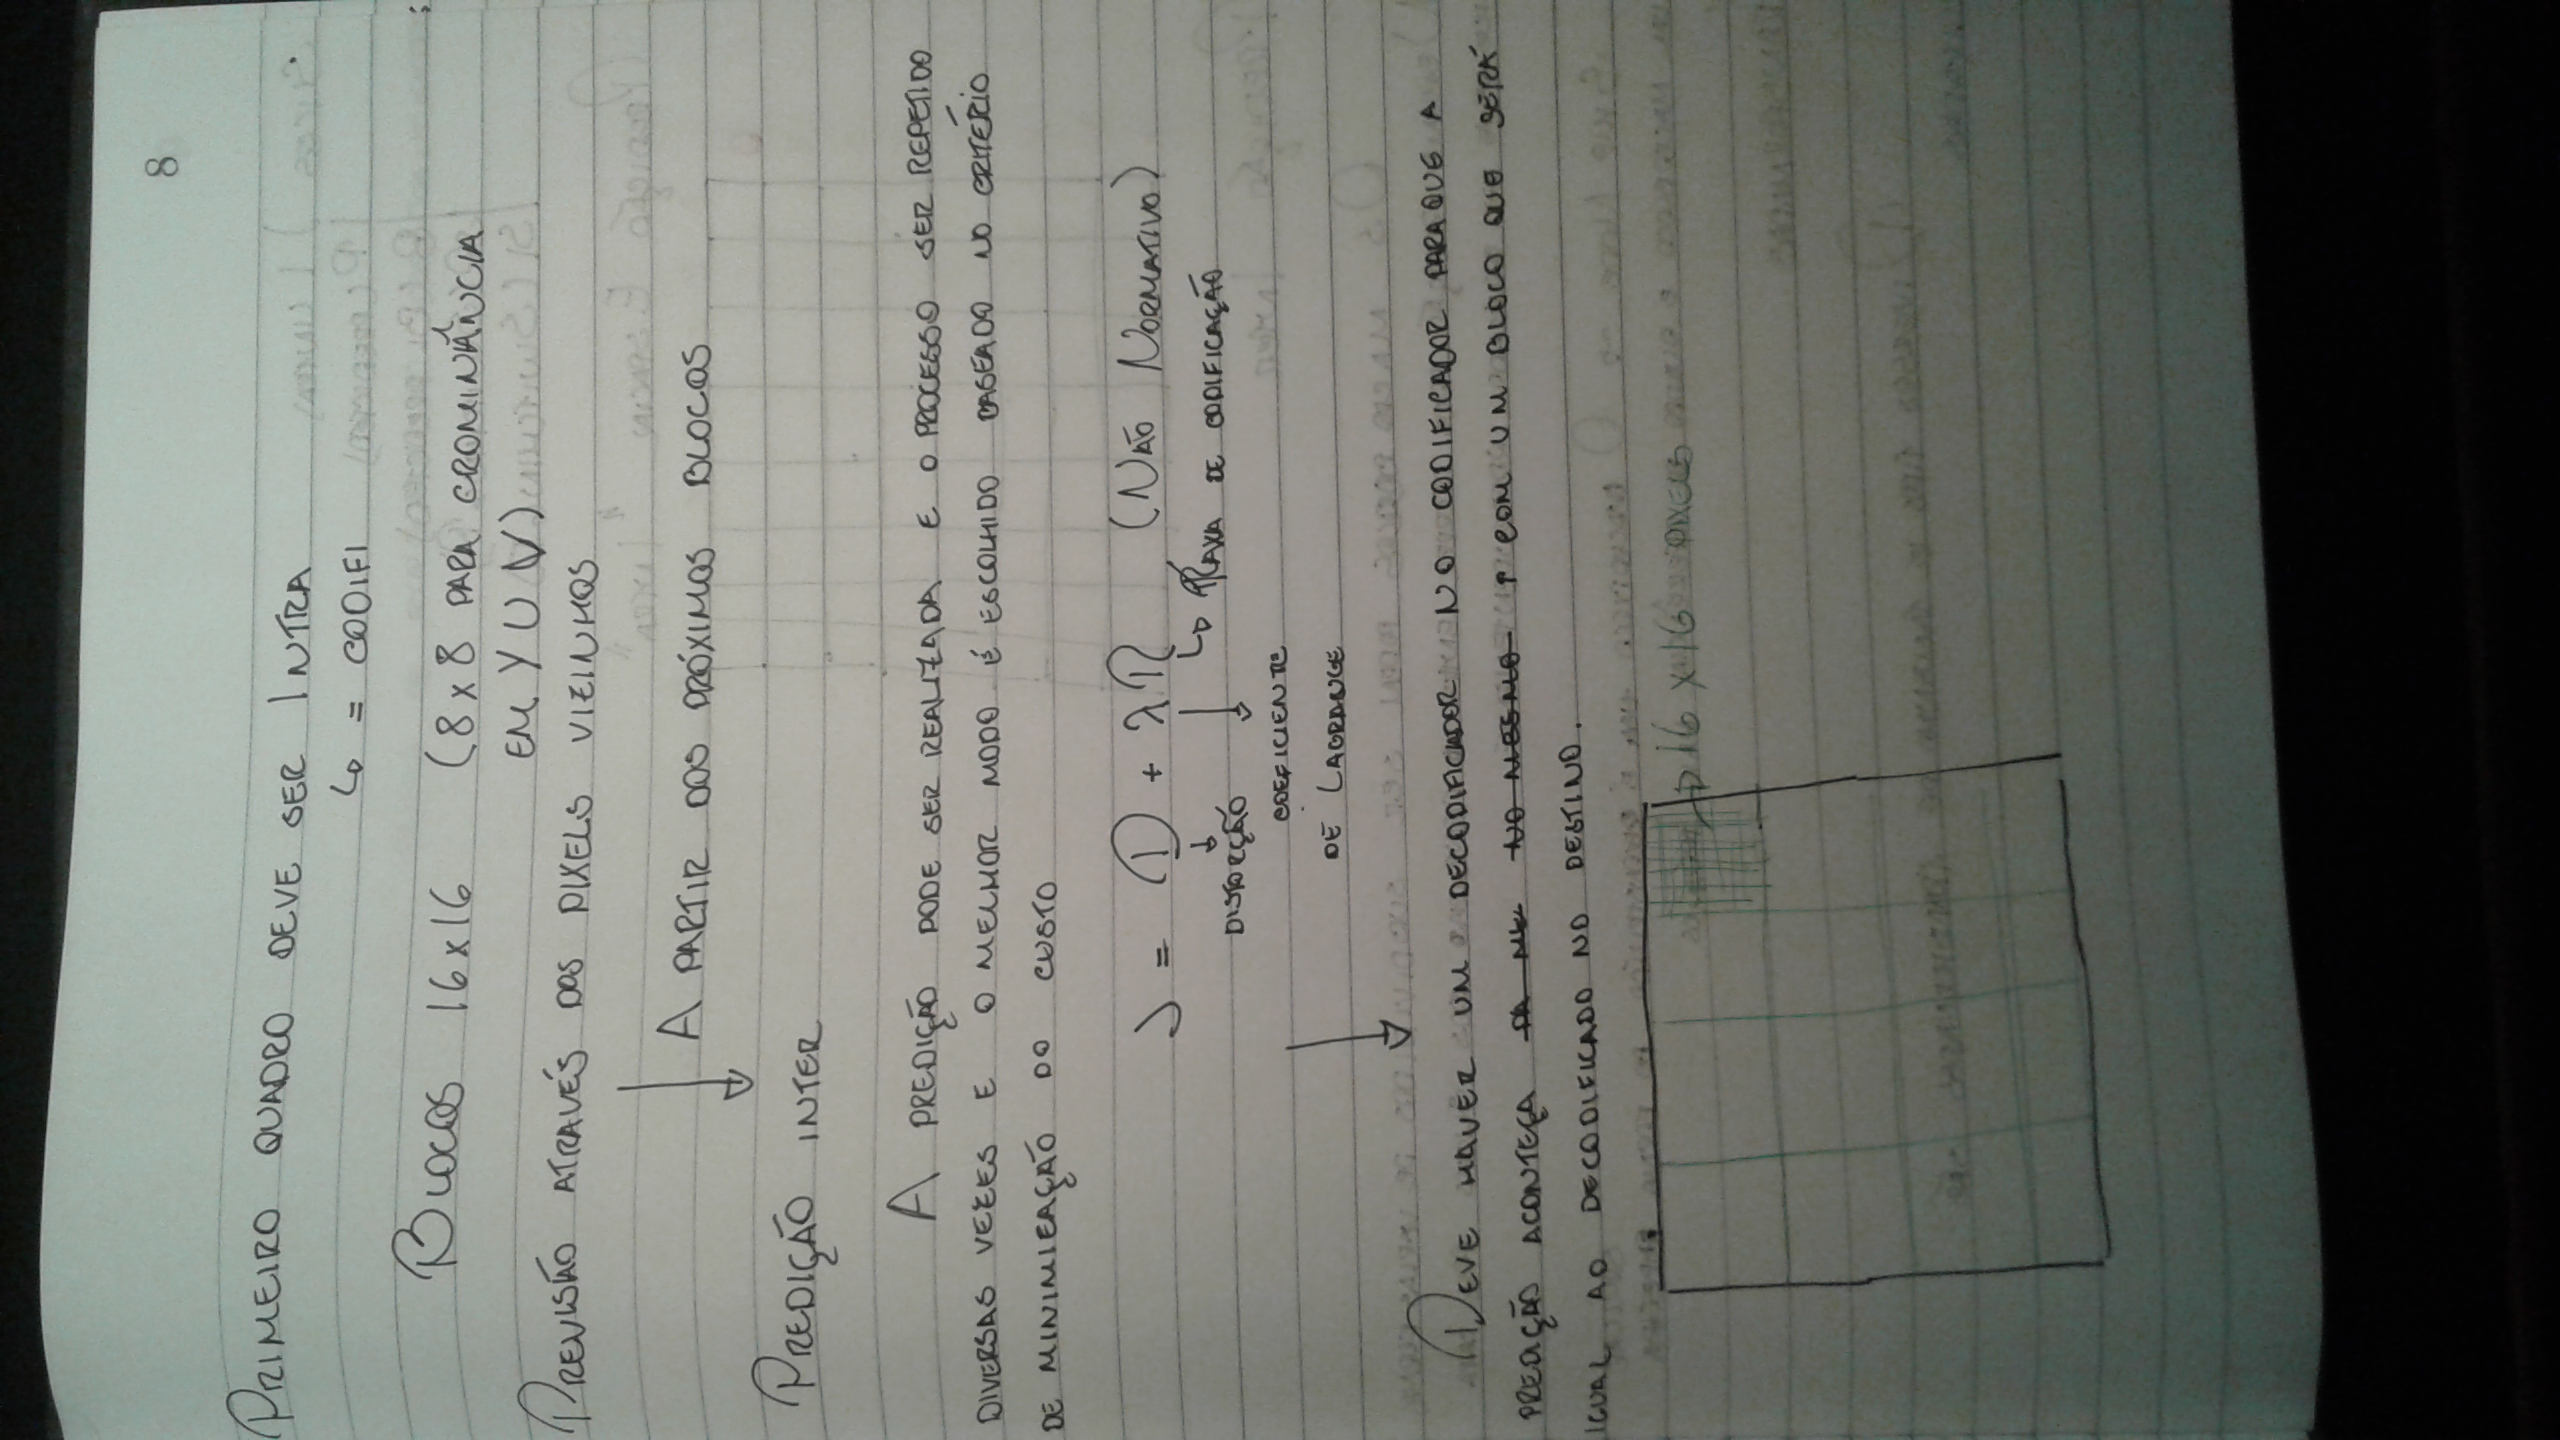 8
PRIMEIRO QUADRO DEVE SER INTRA
↳ = CODIFI
BLOCOS 16x16 (8x8 PARA CROMINÂNCIA
EM YUV)
PREVISÃO ATRAVÉS DOS PIXELS VIZINHOS
A PARTIR DOS PRÓXIMOS BLOCOS
PREDIÇÃO INTER
A PREDIÇÃO PODE SER REALIZADA E O PROCESSO SER REPETIDO
DIVERSAS VEZES E O MELHOR MODO É ESCOLHIDO BASEADO NO CRITÉRIO
DE MINIMIZAÇÃO DO CUSTO
J = D + λR (NÃO NORMATIVO)
↳ TAXA DE CODIFICAÇÃO
DISTORÇÃO
COEFICIENTE
DE LAGRANGE
DEVE HAVER UM DECODIFICADOR NO CODIFICADOR PARA QUE A
PREDIÇÃO ACONTEÇA NO MESMO COM UM BLOCO QUE SERÁ
IGUAL AO DECODIFICADO NO DESTINO.
16 x 16 PIXELS